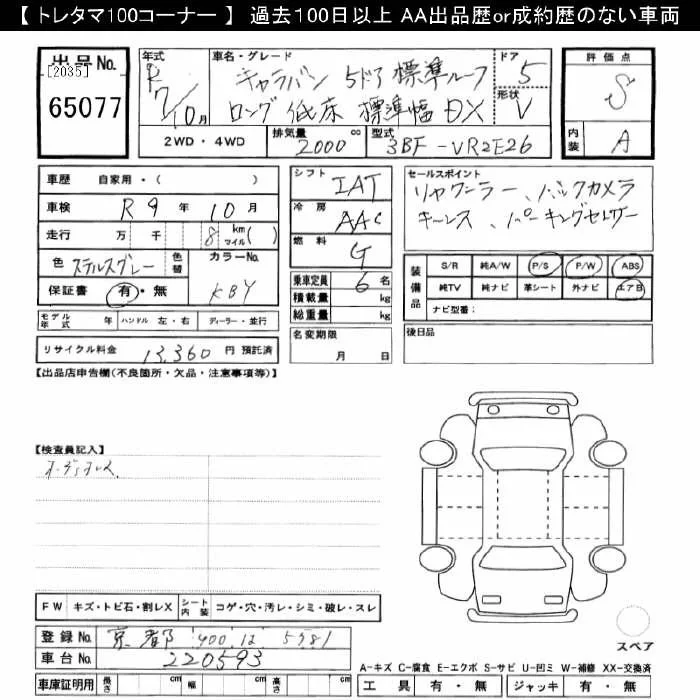 【 トレタマ100コーナー 】 過去100日以上 AA出品歴or成約歴のない車両
出品No. [2035] 65077
年式 R 7/10月
車名・グレード キャラバン 5ドア 標準ルーフ
ロング 低床 標準幅 DX
ドア 5
形状 V
評価点 S
内装 A
2WD ・ 4WD
排気量 2000 cc
型式 3BF-VR2E26
車歴 自家用・( )
車検 R 9 年 10 月
走行 万 千 8 km マイル ( )
色 ステルスグレー 色替 カラーNo. KBY
保証書 有・無
モデル年式 年 ハンドル 左・右 ディーラー・並行
リサイクル料金 13,360 円 預託済
シフト IAT
冷房 AAC
燃料 G
乗車定員 6 名
積載量 kg
総重量 kg
名変期限 月 日
セールスポイント
リヤクーラー、バックカメラ
キーレス、パーキングセンサー
装備品 S/R 純A/W P/S P/W ABS
純TV 純ナビ 革シート 外ナビ エアB
ナビ型番:
後日品
【出品店申告欄(不良箇所・欠品・注意事項等)】
【検査員記入】
オーディオレス
FW キズ・トビ石・割レX シート内装 コゲ・穴・汚レ・シミ・破レ・スレ
登録No. 京都 400 に 5981
車台No. 220593
車庫証明用 長さ cm 幅 cm 高さ cm
スペア
A-キズ C-腐食 E-エクボ S-サビ U-凹ミ W-補修 XX-交換済
工具 有・無 ジャッキ 有・無